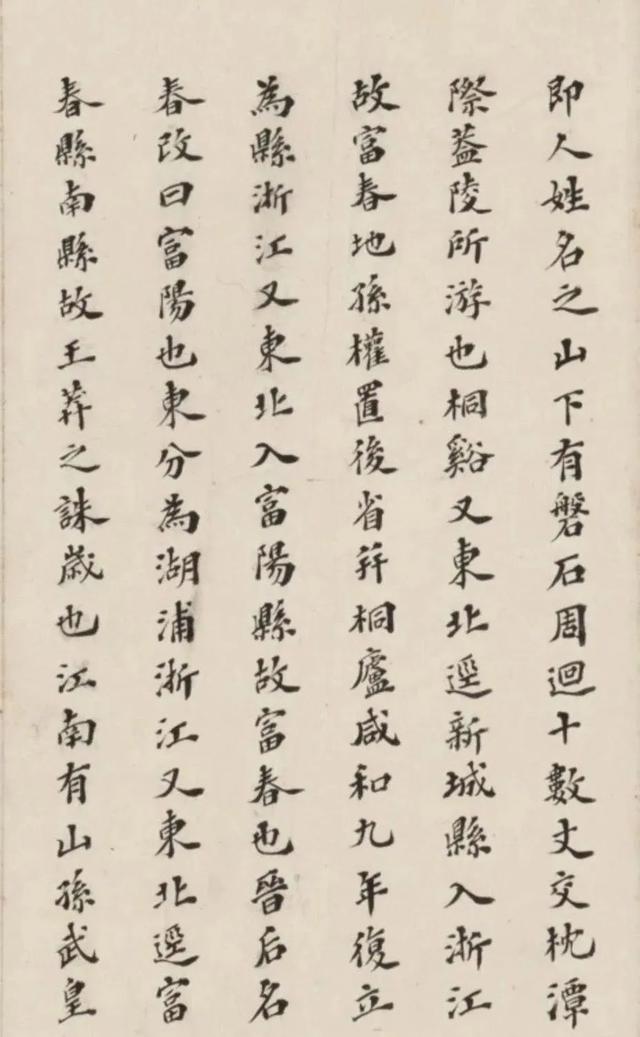 即人姓名之山下有磐石周迴十數丈交枕潭
際蓋陵所游也桐谿又東北逕新城縣入浙江
故富春地孫權置後省并桐廬咸和九年復立
為縣浙江又東北入富陽縣故富春也晉后名
春改曰富陽也東分為湖浦浙江又東北逕富
春縣南縣故王莽之誅歲也江南有山孫武皇